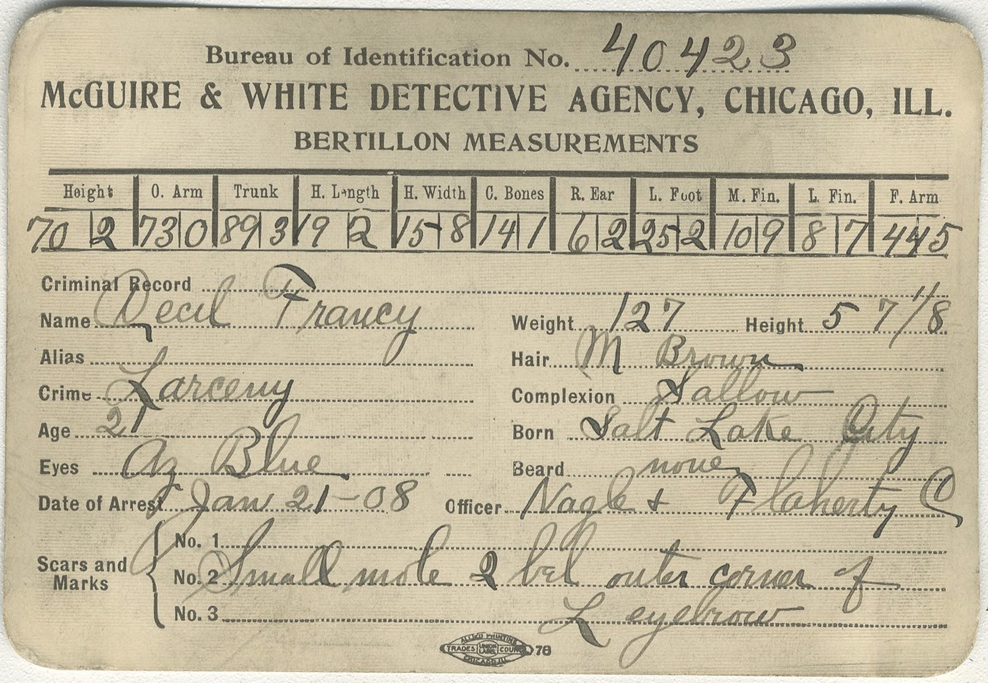 Bureau of Identification No. 40423
McGUIRE & WHITE DETECTIVE AGENCY, CHICAGO, ILL.
BERTILLON MEASUREMENTS
Height O. Arm Trunk H. Length H. Width C. Bones R. Ear L. Foot M. Fin. L. Fin. F. Arm
70 2 73 0 89 3 19 2 15 8 14 1 6 2 25 2 10 9 8 7 44 5
Criminal Record
Name Decil Francy Weight 127 Height 5 7 1/8
Alias Hair M Brown
Crime Larceny Complexion Sallow
Age 21 Born Salt Lake City
Eyes Az Blue Beard none
Date of Arrest Jan 21-08 Officer Nagle & Flaherty C
Scars and Marks
No. 1
No. 2 Small mole 2 bel outer corner of
No. 3 L eyebrow
ALLIED PRINTING
TRADES UNION LABEL COUNCIL
CHICAGO, ILL.
78